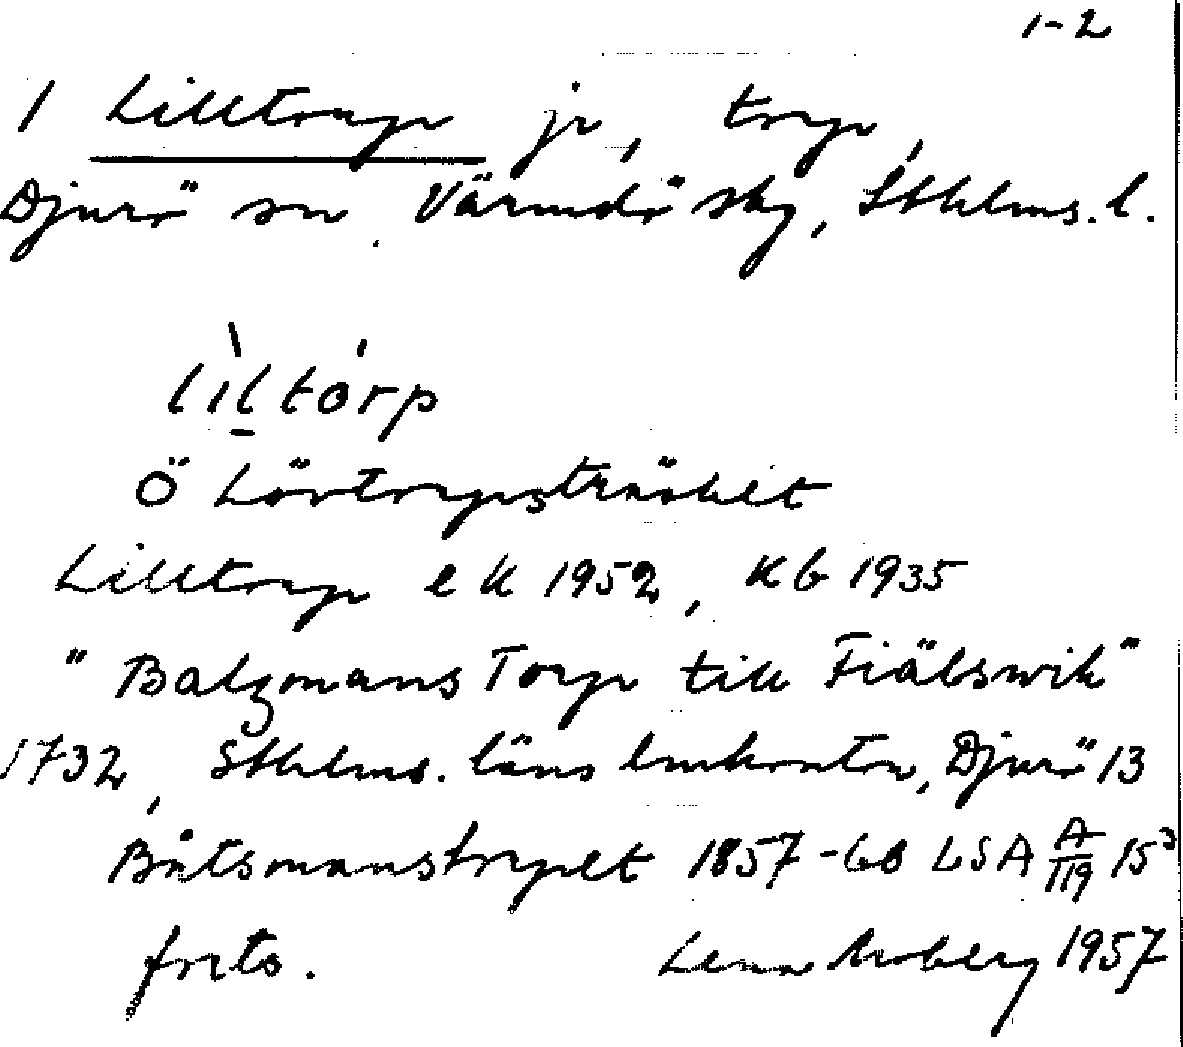 1-2
1 Lilltorp jr, torp,
Djurö sn. Värmdö sky, Sthlms. l.
lìltórp
Ö Lövtorpsträsket
Lilltorp ek 1952, Kb 1935
" Batzmans Torp till Fiälswik"
1732, Sthlms. läns lmkontor, Djurö 13
Båtsmanstorpet 1857-60 LSA A/119 15³
forts. Lena Moberg 1957